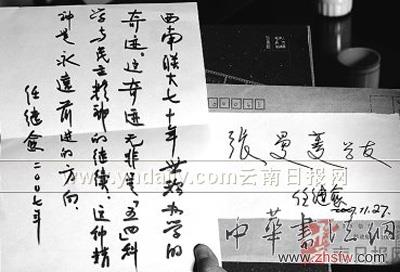 西南联大七十年世称办学的
奇迹，这奇迹无非是“五四”科
学与民主精神的继续，这种精
神是永远前进的方向。
任继愈 二〇〇七年
张曼菱学友
任继愈
2007.11.27.
www.yndaily.com云南日报网
中華書法网
www.zhsfw.com